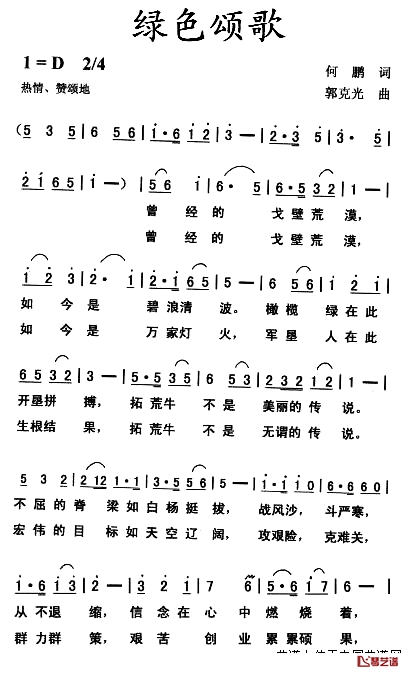 绿色颂歌
1=D 2/4
何 鹏 词
热情、赞颂地
郭克光 曲
(5 3 5 | 6 5 6 | 1·6 1 2 | 3 — | 2·3 5 | 3·3 |
2 1 6 5 | 1 — ) | 5 6 1 | 6· 5 | 6·5 3 2 | 1 — |
曾 经 的 戈 壁 荒 漠,
曾 经 的 戈 壁 荒 漠,
1 2 3 | 2· 1 | 2·1 6 5 | 5 — | 5 6 1 | 2 1 |
如 今 是 碧 浪 清 波。 橄 榄 绿 在 此
如 今 是 万 家 灯 火, 军 垦 人 在 此
6 5 3 2 | 3 — | 5·3 5 6 | 5 | 2 3 2 | 1 — |
开 垦 拼 搏, 拓 荒 牛 不 是 美 丽 的 传 说。
生 根 结 果, 拓 荒 牛 不 是 无 谓 的 传 说。
5 3 2 | 2 1 2 | 1·1 | 3 5·3 | 5 — | 1·1 1 | 6·6 6 0 |
不 屈 的 脊 梁 如 白 杨 挺 拔, 战 风 沙, 斗 严 寒,
宏 伟 的 目 标 如 天 空 辽 阔, 攻 艰 险, 克 难 关,
1·6 1 3 | 2 | 3·2 1 2 | 7 6 | 5·6 1 7 | 6 — |
从 不 退 缩, 信 念 在 心 中 燃 烧 着,
群 力 群 策, 艰 苦 创 业 累 累 硕 果,
琴艺谱